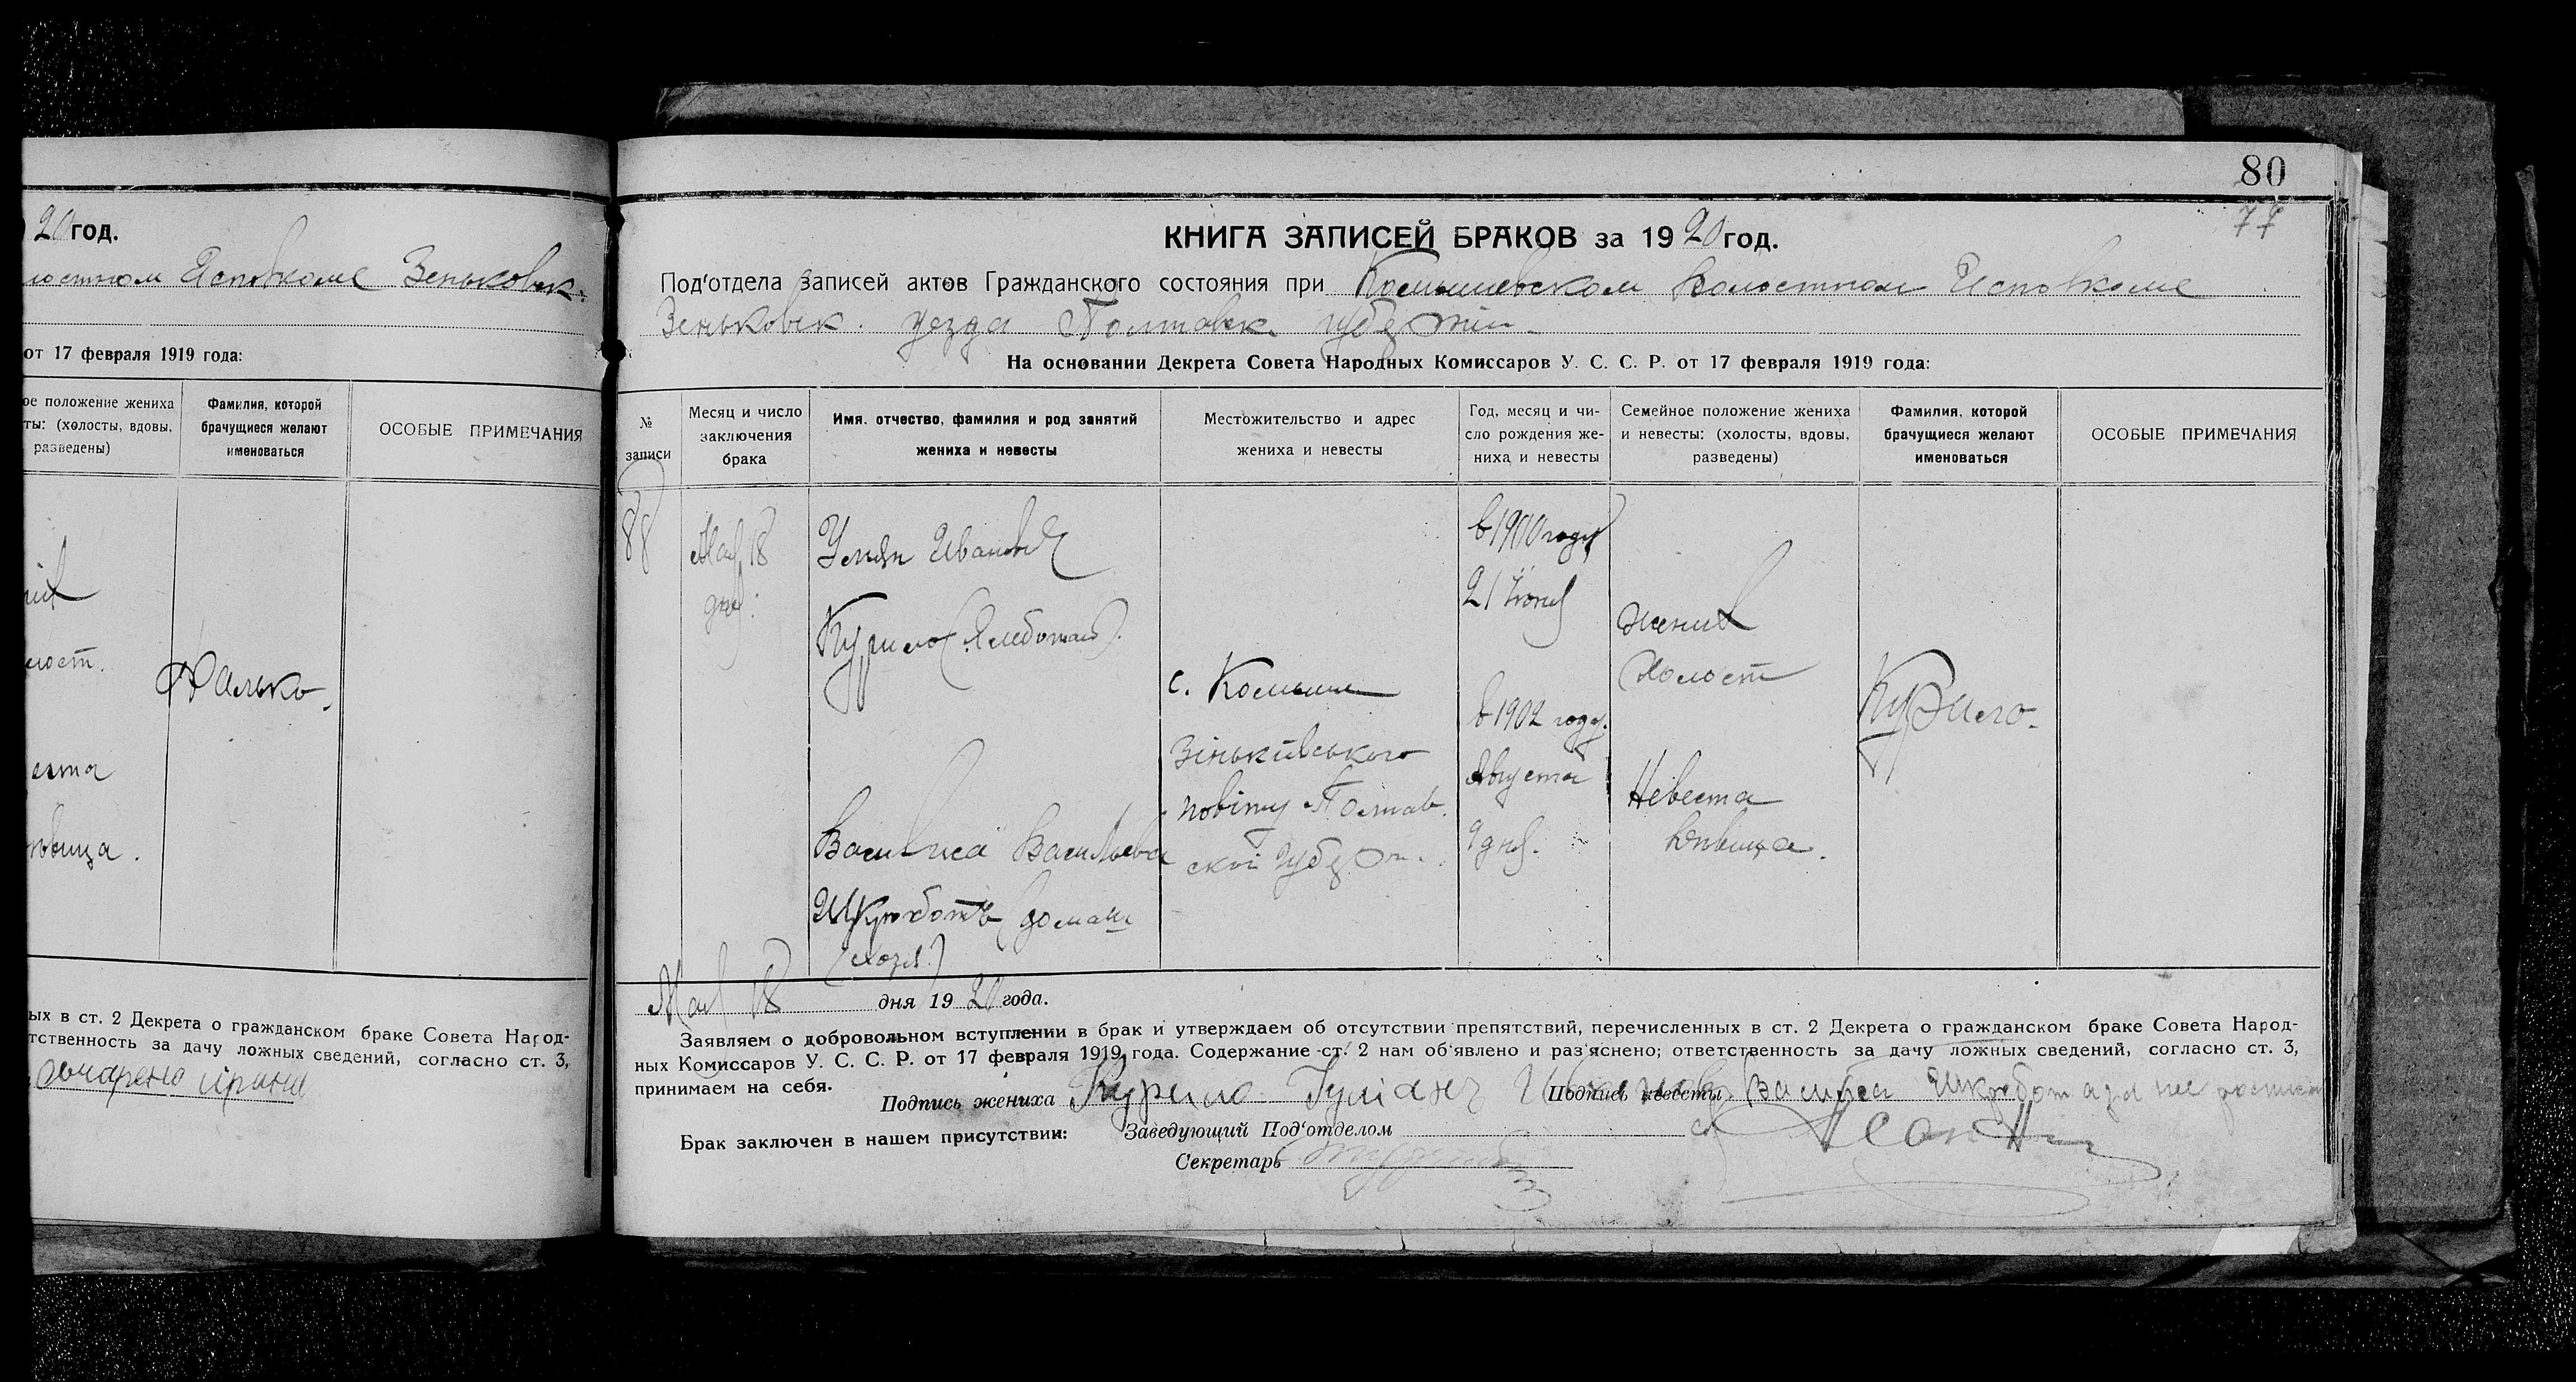 20 год.
Исполкоме Зеньковск.
от 17 февраля 1919 года:
ое положение жениха
ты: (холосты, вдовы,
разведены)
Фамилия, которой
брачущиеся желают
именоваться
ОСОБЫЕ ПРИМЕЧАНИЯ
Фалько.
ых в ст. 2 Декрета о гражданском браке Совета Народ-
тственность за дачу ложных сведений, согласно ст. 3,
80
77
КНИГА ЗАПИСЕЙ БРАКОВ за 1920 год.
Под'отдела записей актов Гражданского состояния при Комышевском Волостном Исполкоме
Зеньковск. уезда Полтавск. губернии.
На основании Декрета Совета Народных Комиссаров У. С. С. Р. от 17 февраля 1919 года:
№
записи
Месяц и число
заключения
брака
Имя, отчество, фамилия и род занятий
жениха и невесты
Местожительство и адрес
жениха и невесты
Год, месяц и чи-
сло рождения же-
ниха и невесты
Семейное положение жениха
и невесты: (холосты, вдовы,
разведены)
Фамилия, которой
брачущиеся желают
именоваться
ОСОБЫЕ ПРИМЕЧАНИЯ
88
Мая 18
дня.
Иванов
Курило (Хлебопаш).
Василиса Васильева
домаш
(хозя.)
с. Комыши
Зіньківського
повіту Полтав.
ской Губерн.
в 1900 году
21 Июня
в 1902 году.
Августа
9 дня.
Жених
Холост
Невеста
Девица.
Курило.
Мая 18 дня 1920 года.
Заявляем о добровольном вступлении в брак и утверждаем об отсутствии препятствий, перечисленных в ст. 2 Декрета о гражданском браке Совета Народ-
ных Комиссаров У. С. С. Р. от 17 февраля 1919 года. Содержание ст. 2 нам об'явлено и раз'яснено; ответственность за дачу ложных сведений, согласно ст. 3,
принимаем на себя.
Подпись жениха Курило Гулианъ Подпись невесты
Брак заключен в нашем присутствии: Заведующий Под'отделом
Секретарь